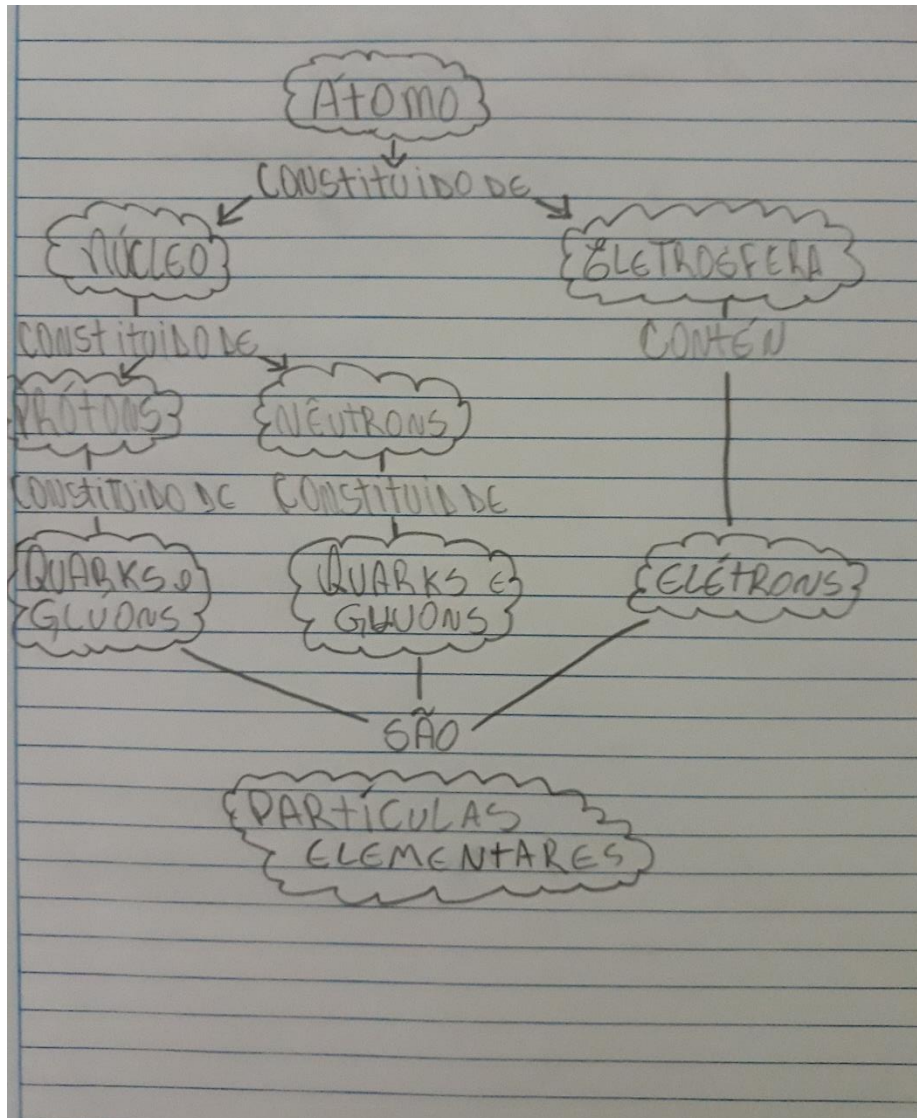 Átomo
CONStituiDO DE
NÚCLEO
ELETROSFERA
CONStituiDO DE
CONtÉN
PRÓtONS
NÊUtRONS
CONStituiDO DE
CONStituiD DE
QUARKS e
GLÚONS
QUARKS E
GLUONS
ELÉtRONS
SÃO
PARtÍCULAS
ELEMENtARES